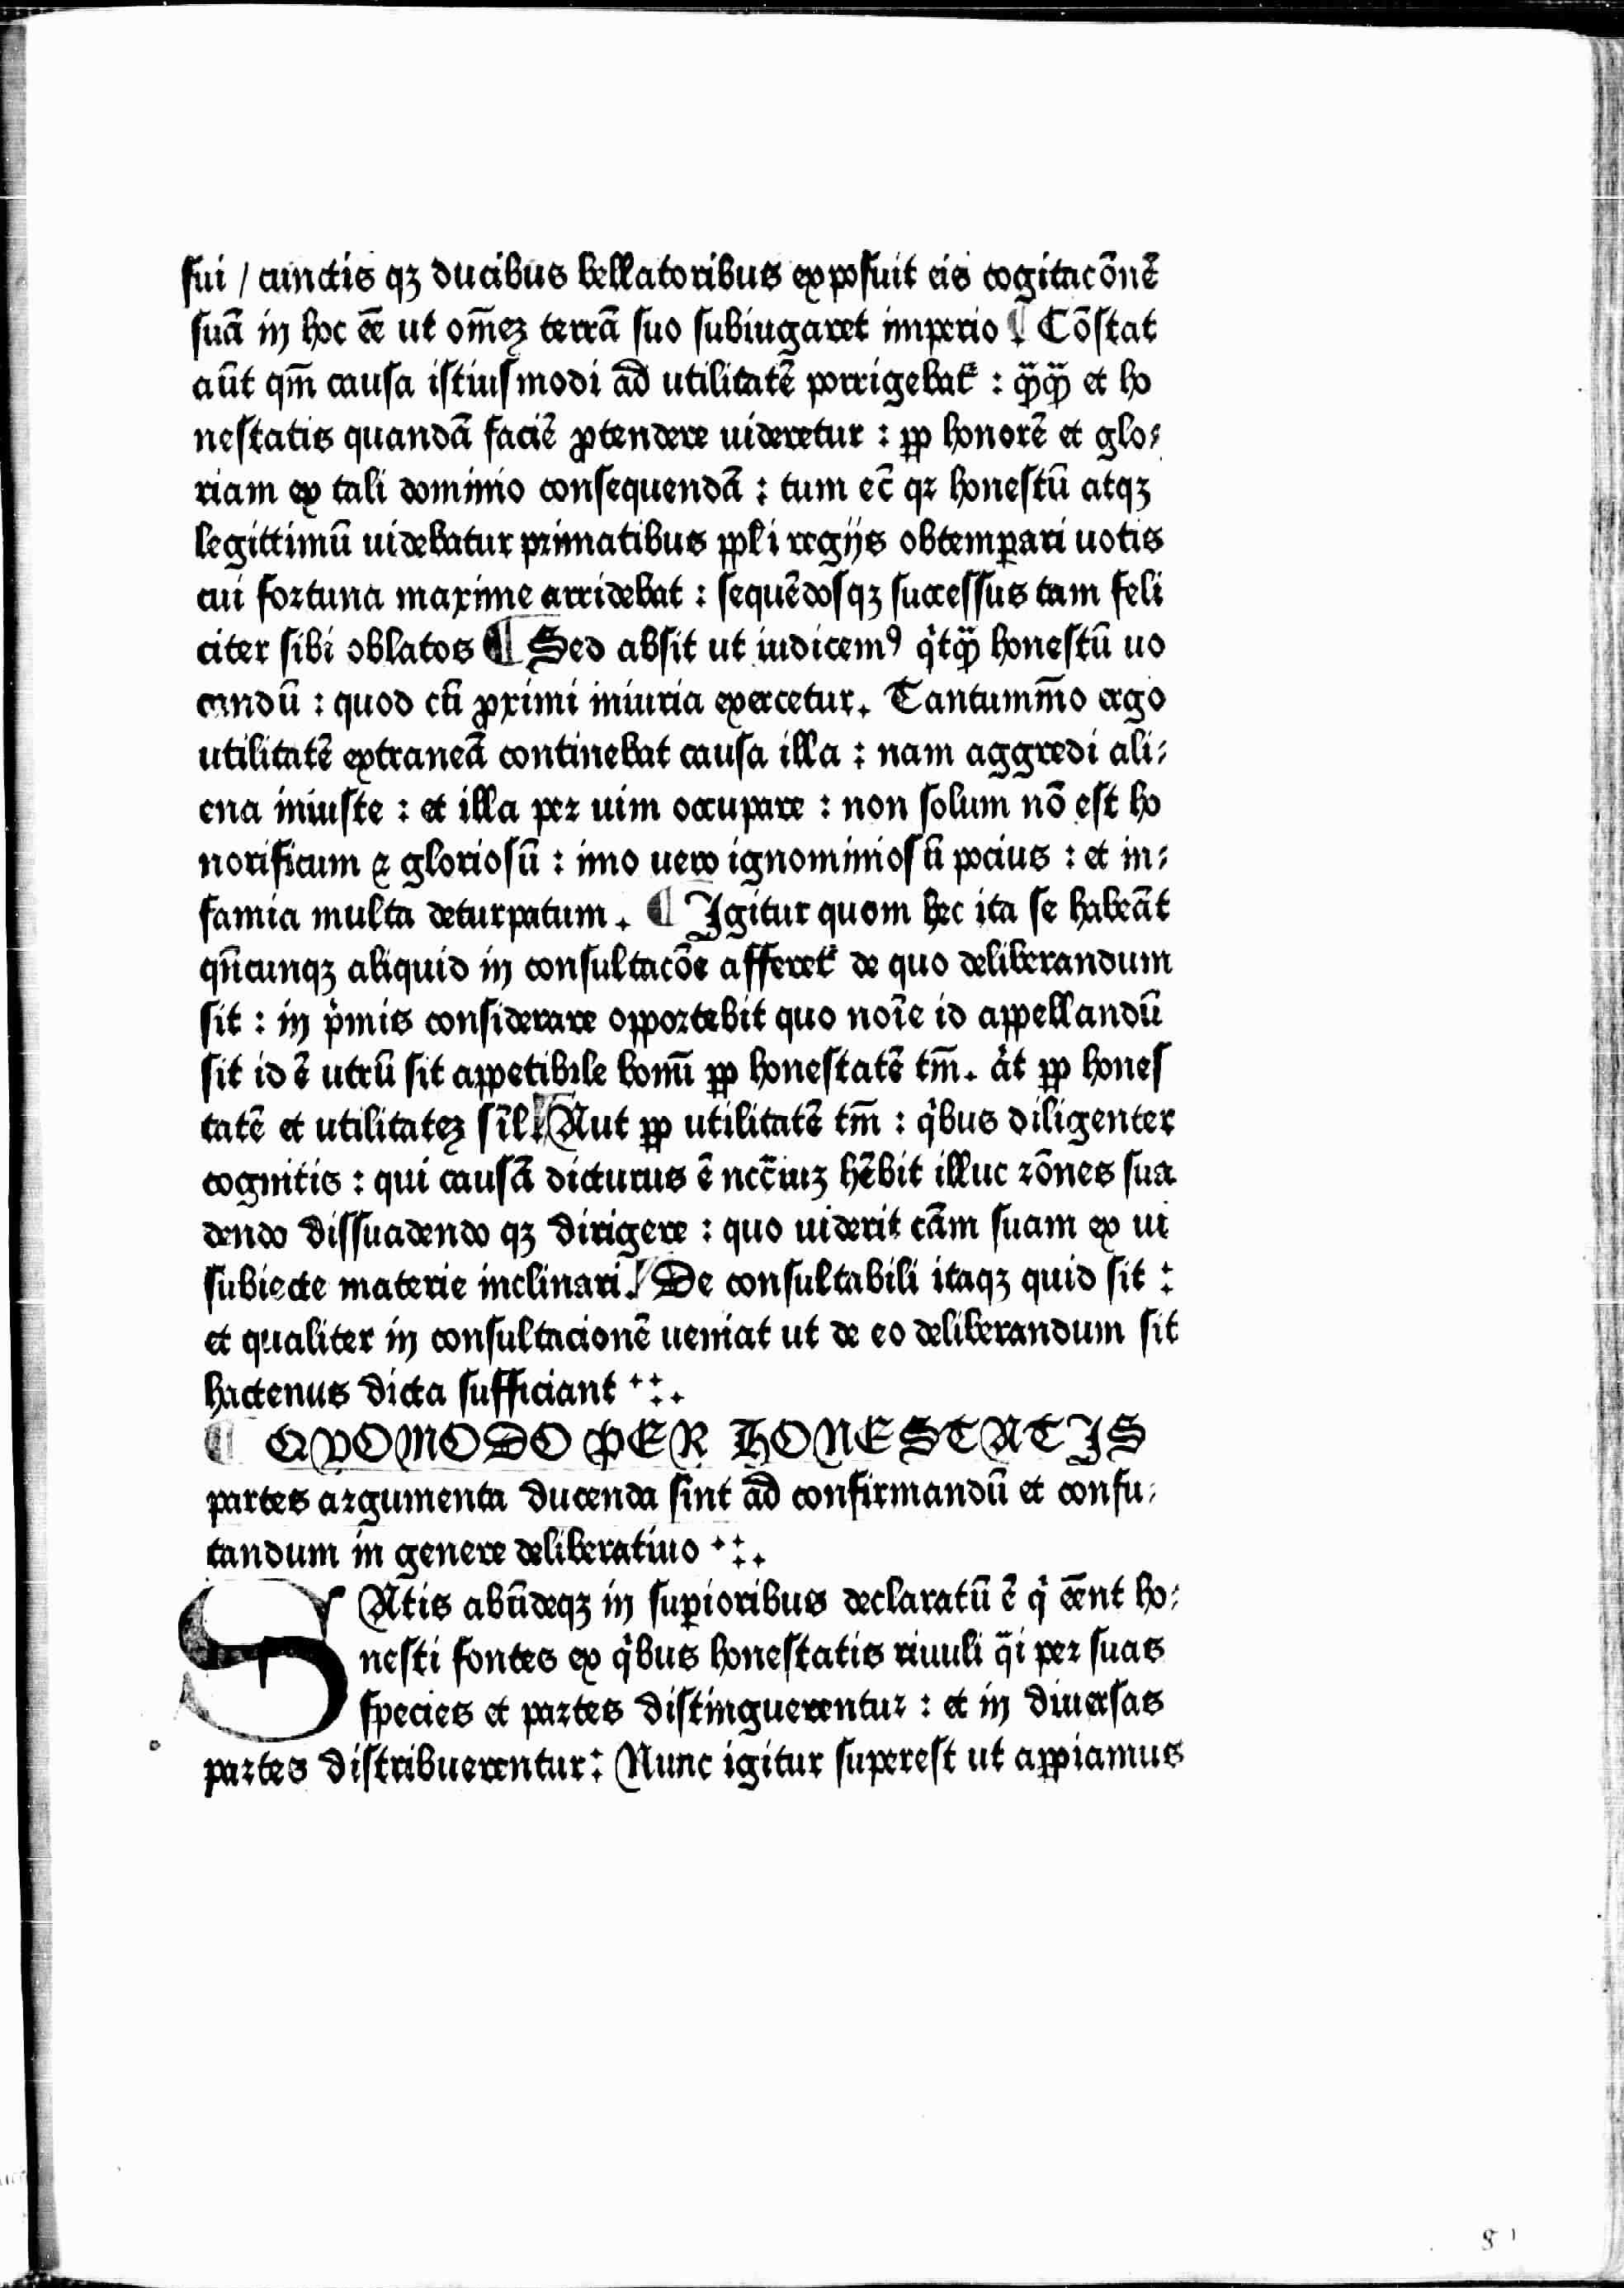 sui / cunctis qꝫ ducibus bellatoribus exposuit eis cogitacōnē
suā in hoc ēe ut om̄eꝫ terrā suo subiugaret imperio ¶ Cōstat
aūt qm̄ causa istiusmodi ad utilitatē porrigebat᷑ : qͣ̄qͣ̄ et ho
nestatis quandā faciē ꝓtendere uideretur : ꝓp honorē et glo⸗
riam ex tali dominio consequendā : tum ec̄ qꝛ honestū atqꝫ
legittimū uidebatur primatibus ppl̓i regijs obtemꝑari uotis
cui fortuna maxime arridebat : sequēdosqꝫ successus tam feli
citer sibi oblatos ¶ Sed absit ut iudicemꝰ qͥtqͣ̄ honestū uo
candū : quod cū ꝓximi iniuria exercetur. Tantumm̄o ergo
utilitatē extraneā continebat causa illa : nam aggredi ali⸗
ena iniuste : et illa per uim occupare : non solum nō est ho
norificum ⁊ gloriosū : imo uero ignominiosū pocius : et in⸗
famia multa deturpatum. ¶ Igitur quom hec ita se habeāt
qn̄cunqꝫ aliquid in consultacōe afferet᷑ de quo deliberandum
sit : in pͥmis considerare opportebit quo noīe id appellandū
sit id ē utrū sit appetibile bonū ꝓp honestatē tm̄. āt ꝓp hones
tatē et utilitateꝫ sil̄. Aut ꝓp utilitatē tm̄ : qͥbus diligenter
cognitis : qui causā dicturus ē ncc̄iuꝫ hēbit illuc rōnes sua
dendo dissuadendo qꝫ dirigere : quo uiderit cām suam ex ui
subiecte materie inclinari. De consultabili itaqꝫ quid sit :
et qualiter in consultacionē ueniat ut de eo deliberandum sit
hactenus dicta sufficiant ·:.
¶ QVOMODO PER HONESTATIS
partes argumenta ducenda sint ad confirmandū et confu⸗
tandum in genere deliberatiuo ·:.
SAtis abūdeqꝫ in suꝑioribus declaratū ē qͥ ēent ho⸗
nesti fontes ex qͥbus honestatis riuuli qͣi per suas
species et partes distinguerentur : et in diuersas
partes distribuerentur : Nunc igitur superest ut appiamus
8 1